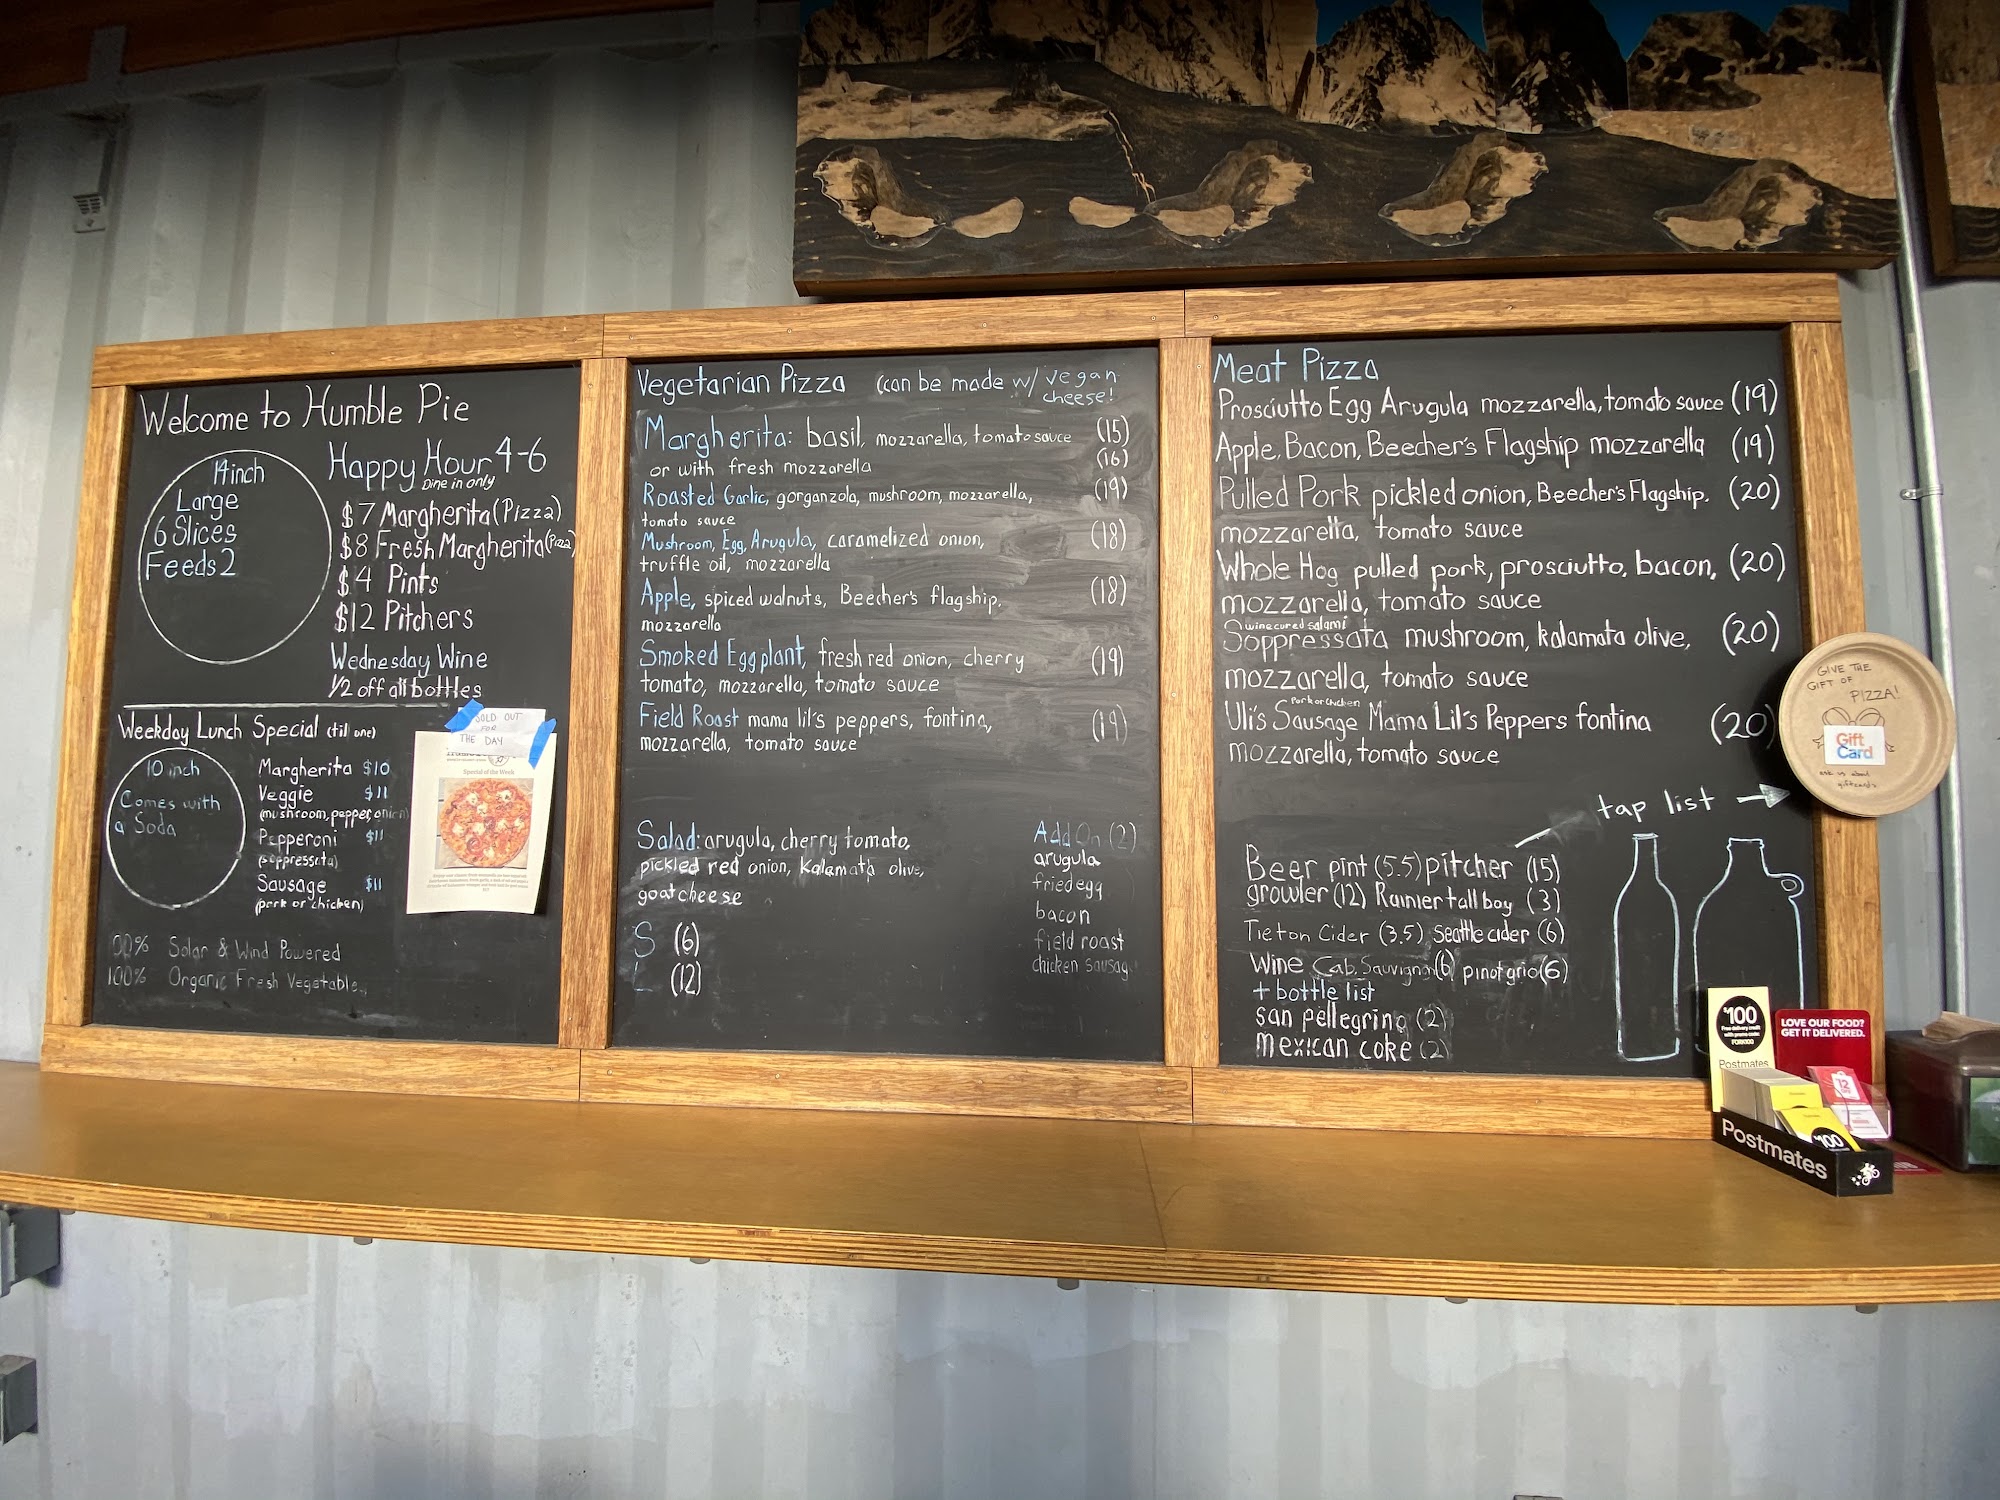 Welcome to Humble Pie
14 inch
Large
6 Slices
Feeds 2
Happy Hour 4-6
Dine in only
$7 Margherita (Pizza)
$8 Fresh Margherita (Pizza)
$4 Pints
$12 Pitchers
Wednesday Wine
1/2 off all bottles
Weekday Lunch Special (till one)
10 inch
Comes with
a Soda
Margherita $10
Veggie $11
(mushroom, pepper, onion)
Pepperoni $11
(soppressata)
Sausage $11
(pork or chicken)
SOLD OUT
FOR
THE DAY
Special of the Week
00% Solar & Wind Powered
100% Organic Fresh Vegetable
Vegetarian Pizza (can be made w/ vegan
cheese!
Margherita: basil, mozzarella, tomato sauce (15)
or with fresh mozzarella (16)
Roasted Garlic, gorganzola, mushroom, mozzarella, (19)
tomato sauce
Mushroom, Egg, Arugula, caramelized onion, (18)
truffle oil, mozzarella
Apple, spiced walnuts, Beecher's flagship, (18)
mozzarella
Smoked Eggplant, fresh red onion, cherry (19)
tomato, mozzarella, tomato sauce
Field Roast mama lil's peppers, fontina, (19)
mozzarella, tomato sauce
Salad: arugula, cherry tomato,
pickled red onion, Kalamata olive,
goat cheese
S (6)
L (12)
Add On (2)
arugula
fried egg
bacon
field roast
chicken sausag
Meat Pizza
Prosciutto Egg Arugula mozzarella, tomato sauce (19)
Apple, Bacon, Beecher's Flagship mozzarella (19)
Pulled Pork pickled onion, Beecher's Flagship. (20)
mozzarella, tomato sauce
Whole Hog pulled pork, prosciutto, bacon, (20)
mozzarella, tomato sauce
wine cured salami
Soppressata mushroom, kalamata olive, (20)
mozzarella, tomato sauce
Pork or Chicken
Uli's Sausage Mama Lil's Peppers fontina (20)
mozzarella, tomato sauce
tap list
Beer pint (5.5) pitcher (15)
growler (12) Rainier tall boy (3)
Tieton Cider (3.5) Seattle cider (6)
Wine Cab. Sauvignon (6) pinot grio (6)
+ bottle list
san pellegrino (2)
mexican coke (2)
GIVE THE
GIFT OF
PIZZA!
Gift
Card
ask us about
giftcards
$100
Free delivery credit
with promo code:
FORK100
Postmates
LOVE OUR FOOD?
GET IT DELIVERED.
$12
$100
Postmates